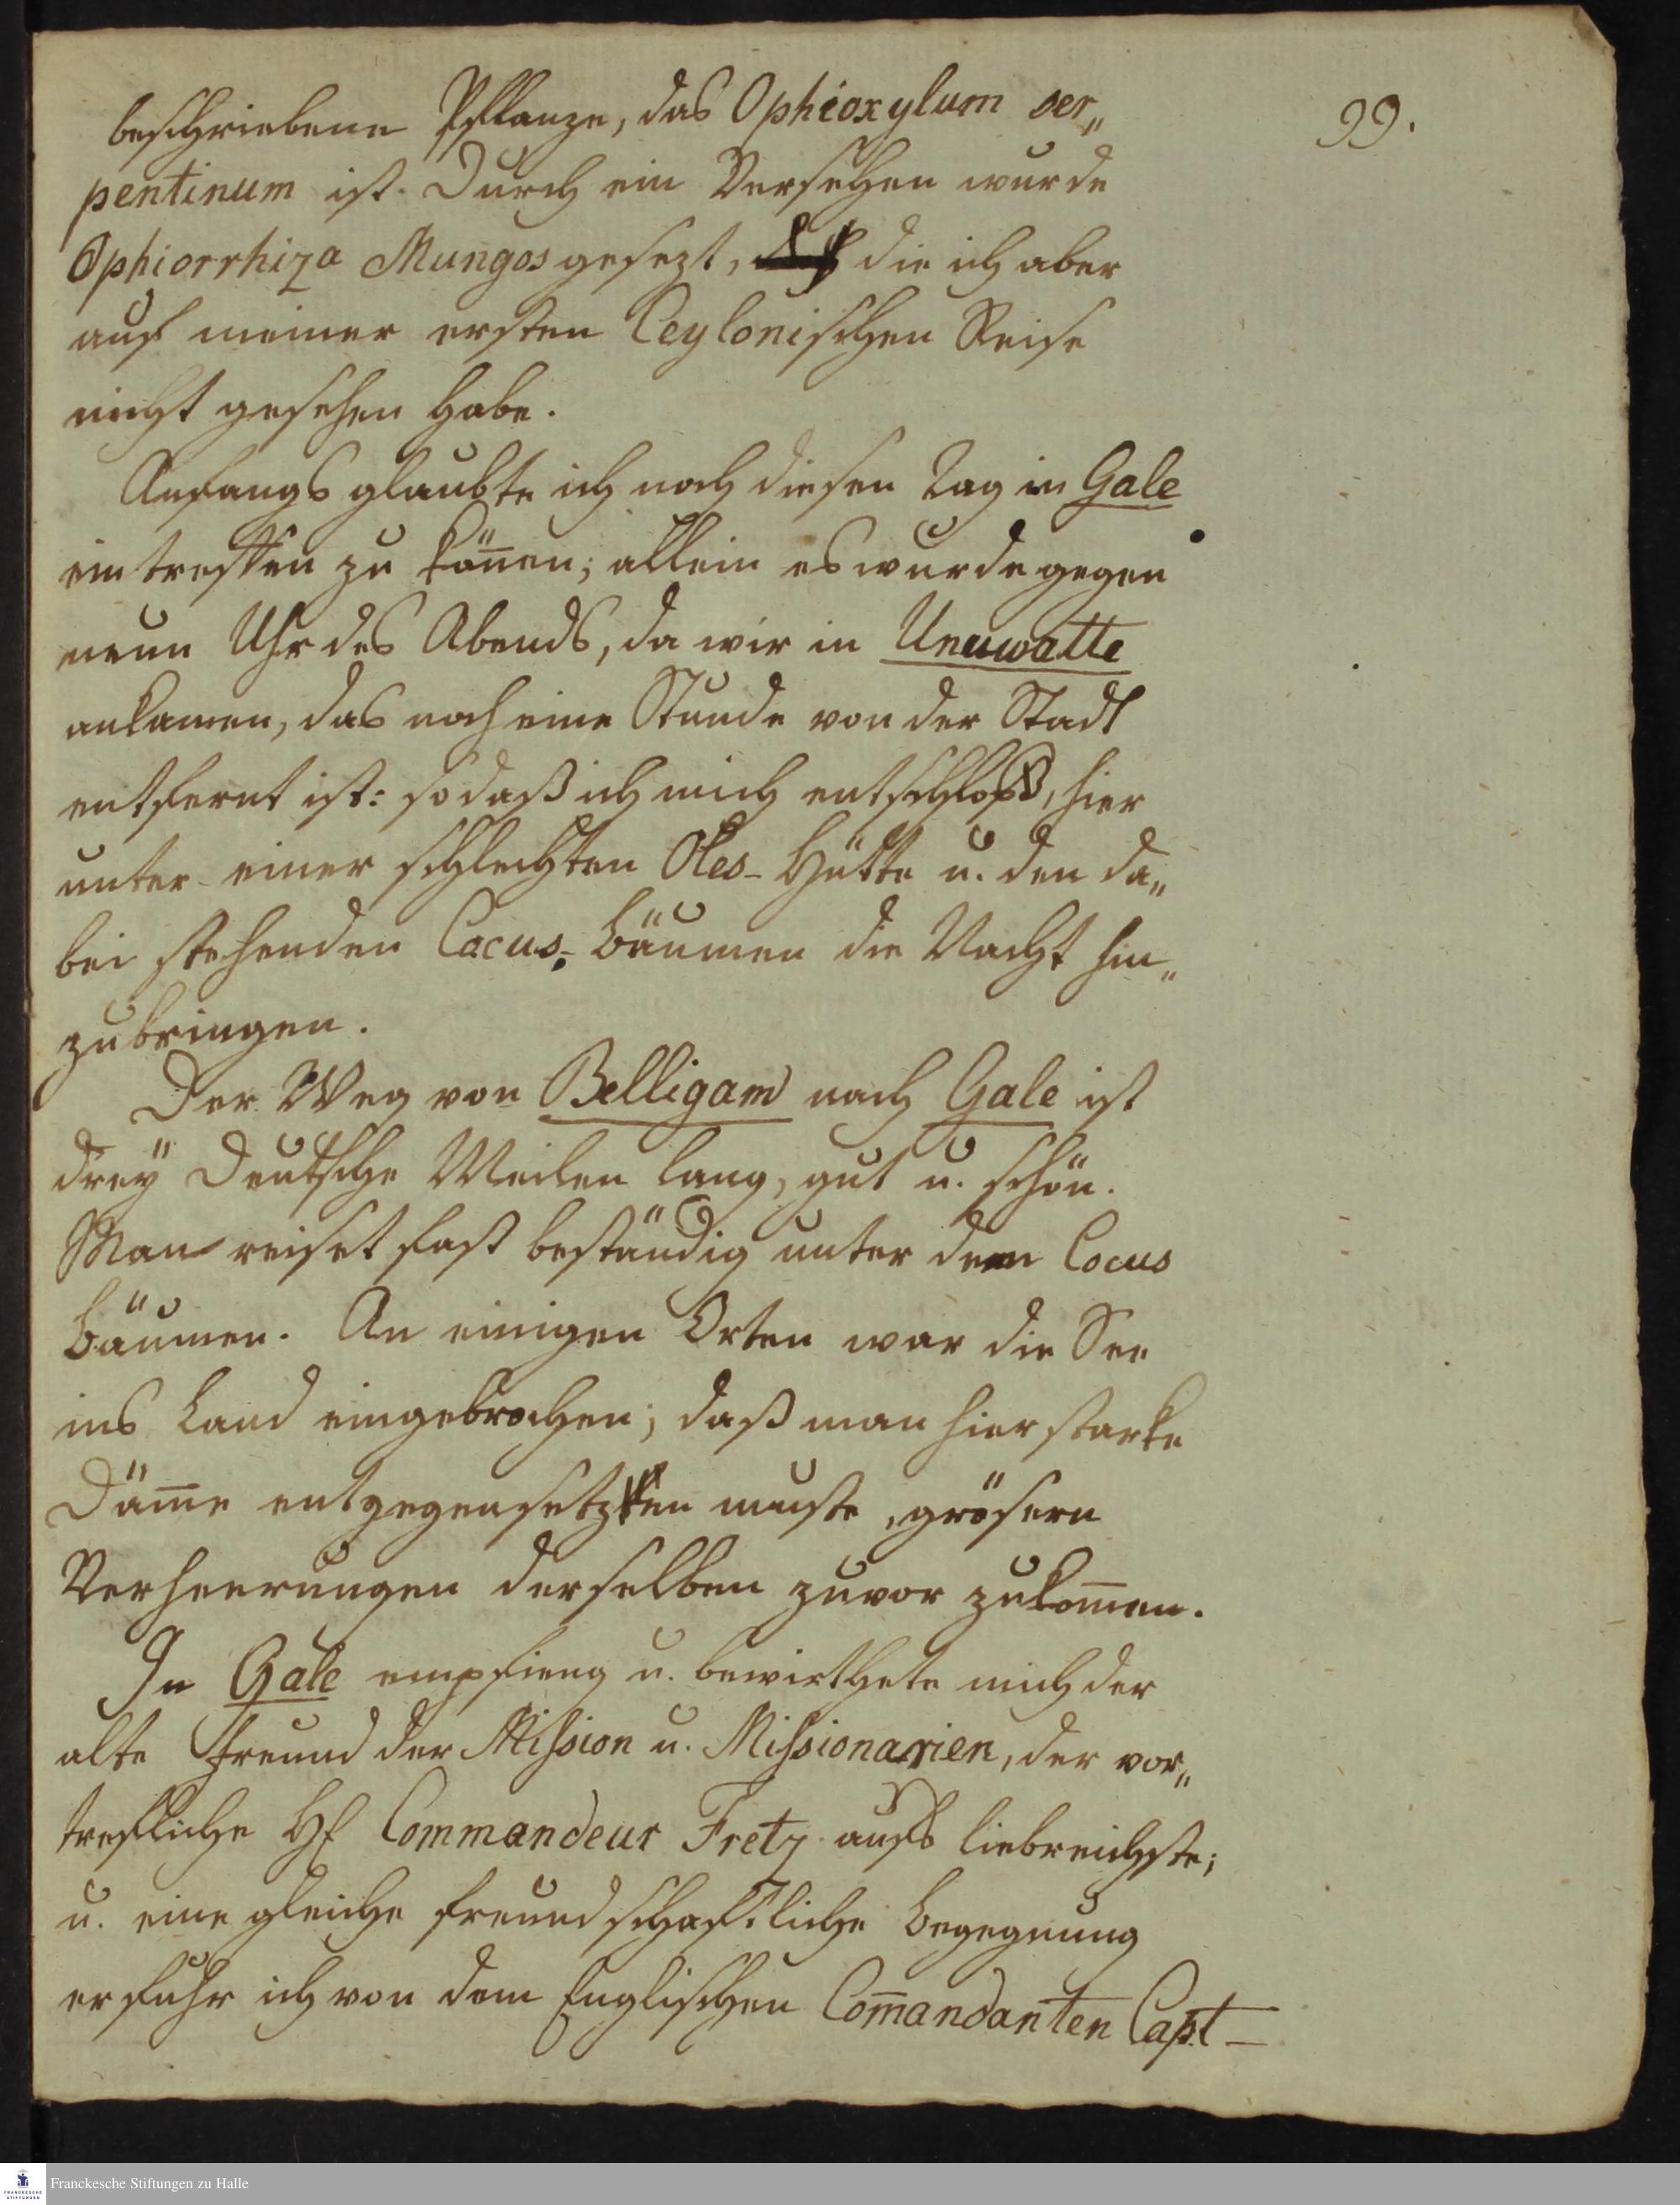 99.
beschriebene Pflanze, das Ophioxylum ser„
pentinum ist. Durch ein Versehen wurde
Ophiorrhiza Mungos gesezt, die ich aber
auf meiner ersten Ceylonischen Reise
nicht gesehen habe.
Anfangs glaubte ich noch diesen Tag in Gale
eintreffen zu kön̄en; allein es wurde gegen
neun Uhr des Abends, da wir in Unuwatte
ankamen, das noch eine Stunde von der Stadt
entfernt ist: so daß ich mich entschloß, hier
unter einer schlechten Oles-Hütte u. den da„
bei stehenden Cocus-bäumen die Nacht hin„
zubringen.
Der Weg von Belligam nach Gale ist
drey Deutsche Meilen lang, gut u. schön.
Man reiset fast beständig unter den Cocus
bäumen. An einigen Orten war die See
ins Land eingebrochen; daß man hier starke
Däm̄e entgegensetzen muste, grösern
Verheerungen derselben zuvor zukom̄en.
In Gale empfieng u. bewirthete mich der
alte Freund der Mission u. Missionarien, der vor„
trefliche H. Commandeur Fretz aufs liebreichste;
u. eine gleiche freundschaftliche Begegnung
erfuhr ich von dem Englischen Com̄andanten Capt
Franckesche Stiftungen zu Halle